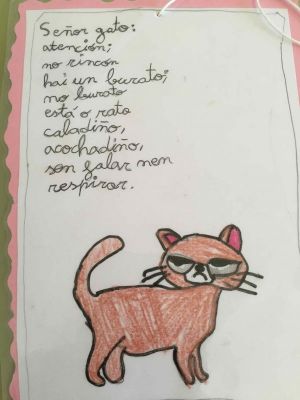 Señor gato:
atención;
no rincón
hai un burato;
no burato
está o rato
caladiño,
acochadiño,
sen falar nen
respirar.